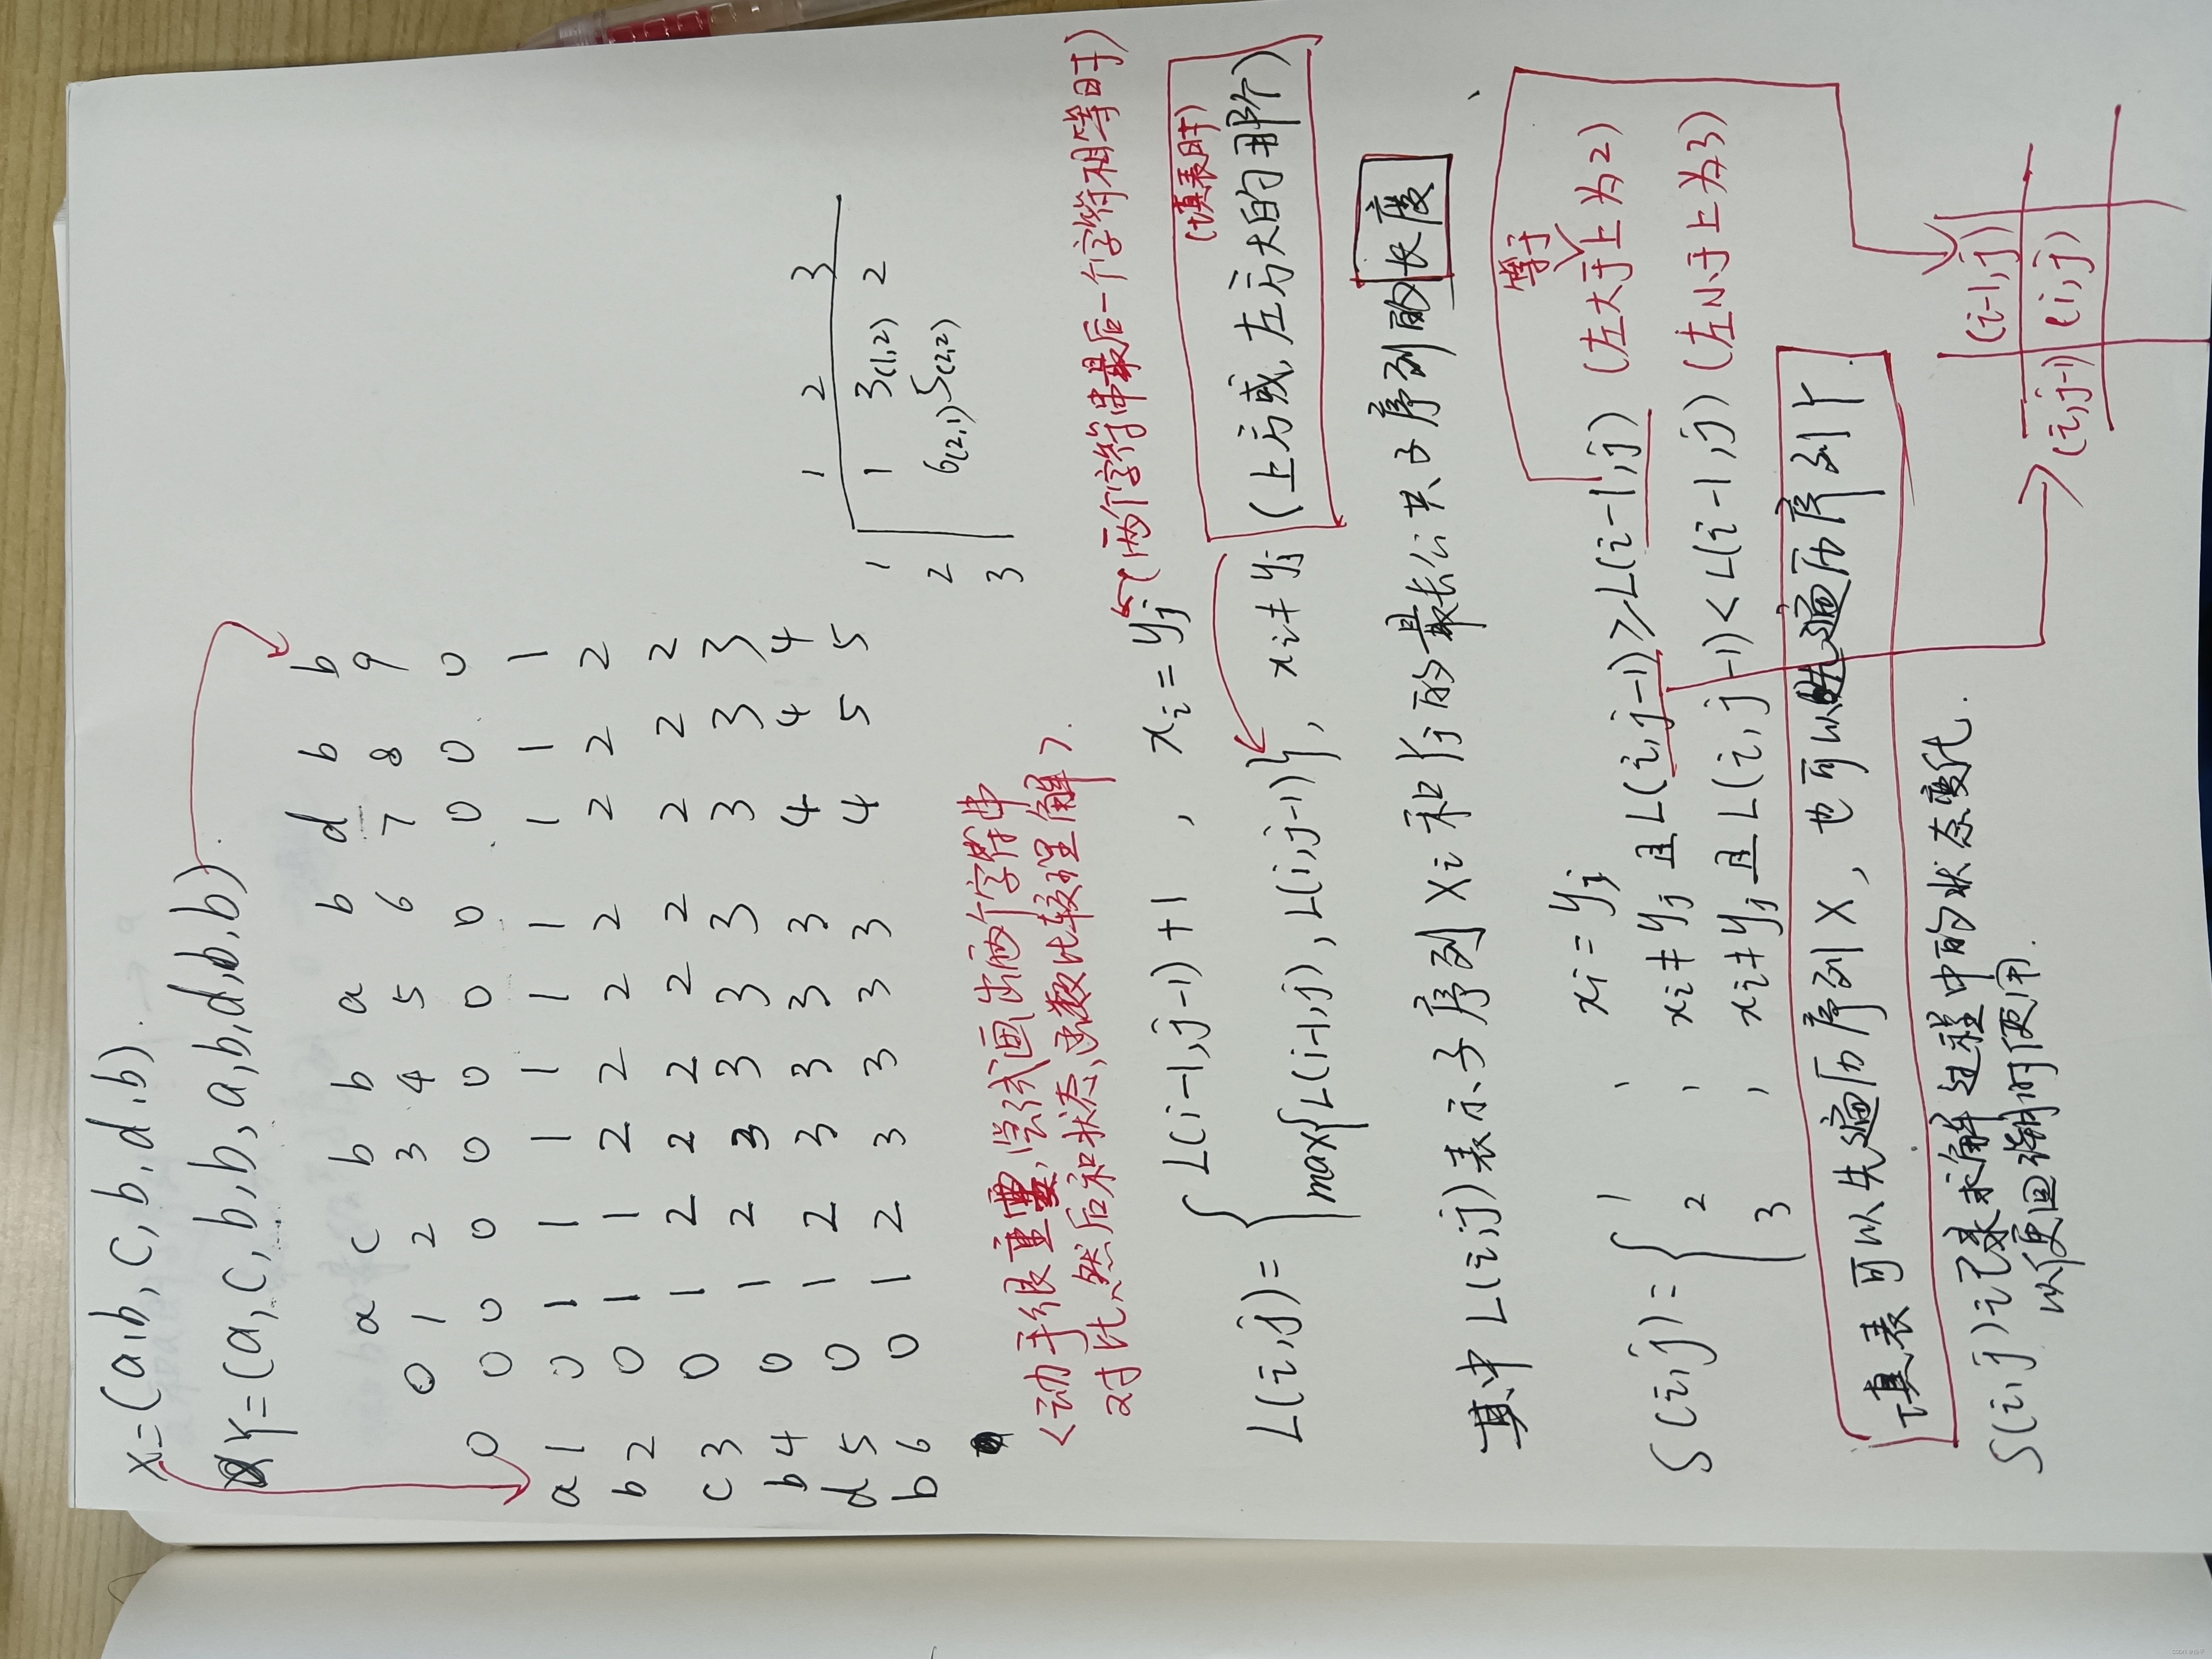 X=(a,b,c,b,d,b).
Y=(a,c,b,b,a,b,d,b,b).
a c b b a b d b b
0 1 2 3 4 5 6 7 8 9
0 0 0 0 0 0 0 0 0 0 0
a 1 0 1 1 1 1 1 1 1 1 1
b 2 0 1 1 2 2 2 2 2 2 2
c 3 0 1 2 2 2 2 2 2 2 2
b 4 0 1 2 3 3 3 3 3 3 3
d 5 0 1 2 3 3 3 3 4 4 4
b 6 0 1 2 3 3 3 3 4 5 5
1 2 3
1 1 3(1,2) 2
2 6(2,1) 5(2,2)
3
<动手很重要,尝试画出两个字符串
对比,然后和状态,函数比较理解>.
L(i,j)={ L(i-1,j-1)+1 , xi=yj (两个字符串最后一个字符相等时)
max{L(i-1,j),L(i,j-1)}, xi≠yj (上方或,左方大的那个)
(填表时)
其中L(i,j)表示子序列Xi和Yj的最长公共子序列的长度
S(i,j)={ 1 , xi=yj
2 , xi≠yj且L(i,j-1)≥L(i-1,j) (左大于上为2)
等于
3 , xi≠yj且L(i,j-1)<L(i-1,j) (左小于上为3)
填表可以先遍历序列X,也可以先遍历序列Y.
S(i,j)记录求解过程中的状态变化.
以便回溯时使用.
(i-1,j)
(i,j-1) (i,j)